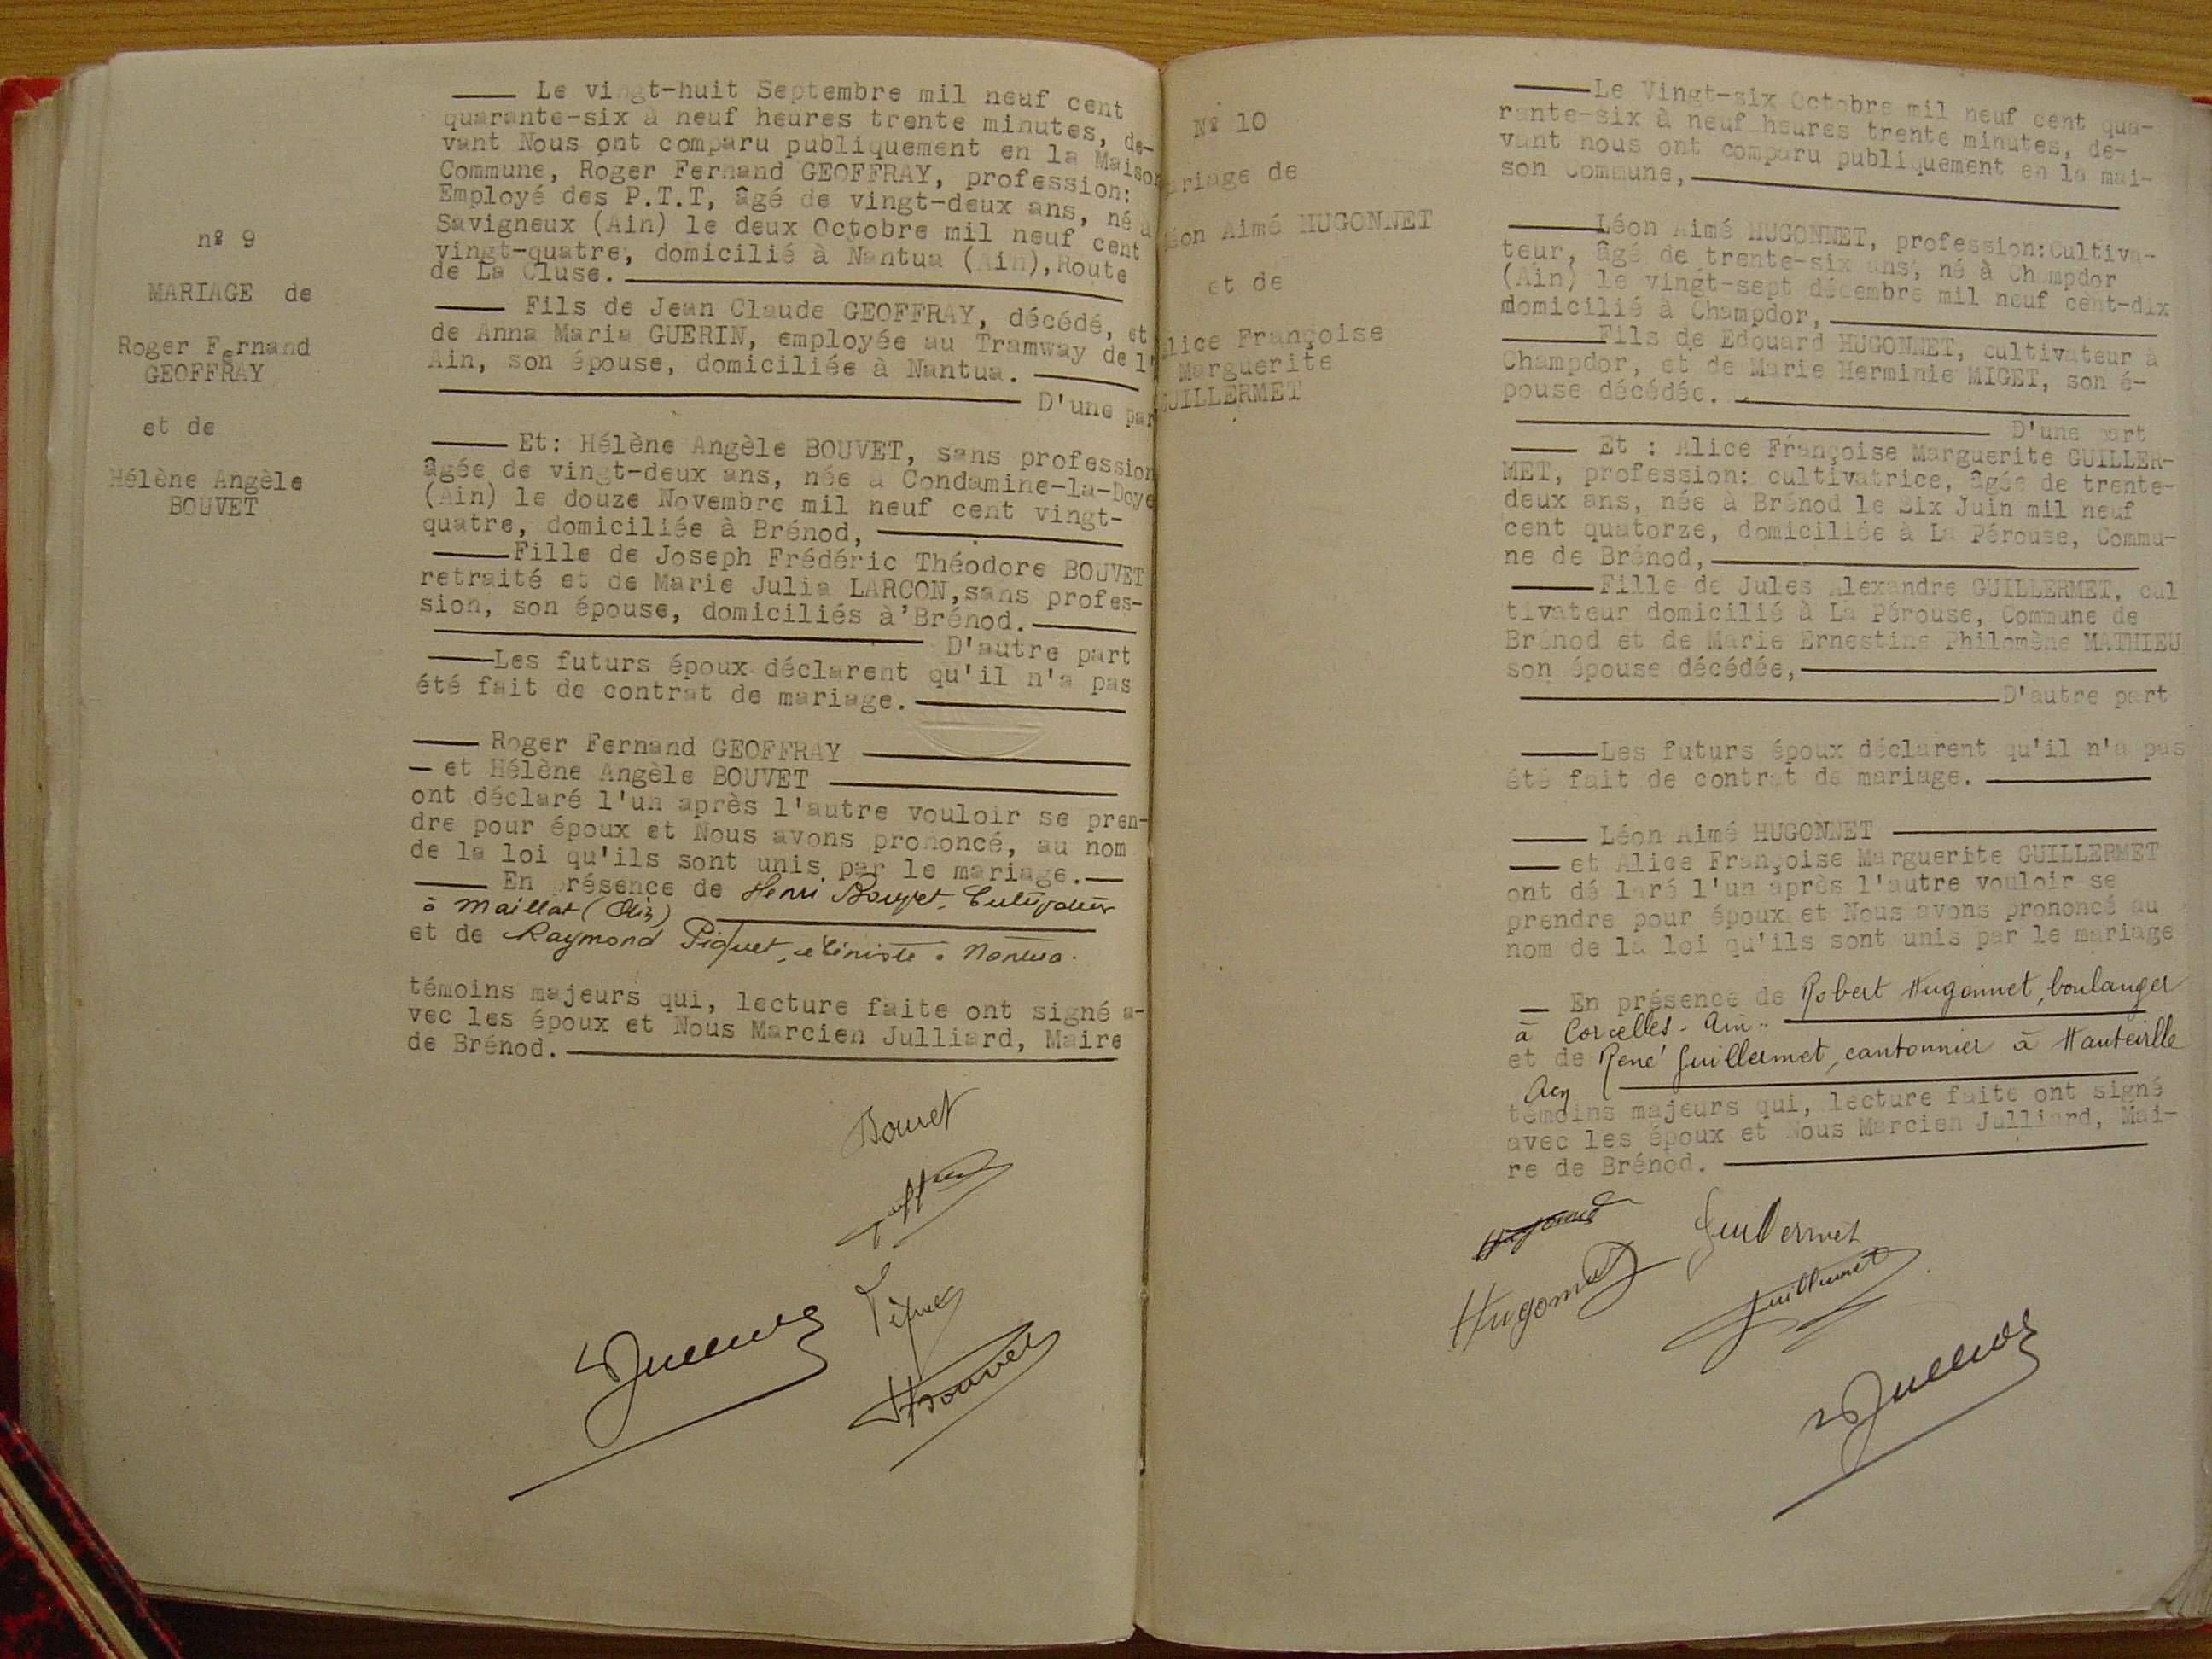 nº 9
MARIAGE de
Roger Fernand
GEOFFRAY
et de
Hélène Angèle
BOUVET
Le vingt-huit Septembre mil neuf cent
quarante-six à neuf heures trente minutes, de-
vant Nous ont comparu publiquement en la Maison
Commune, Roger Fernand GEOFFRAY, profession:
Employé des P.T.T, âgé de vingt-deux ans, né à
Savigneux (Ain) le deux Octobre mil neuf cent
vingt-quatre, domicilié à Nantua (Ain), Route
de La Cluse.
Fils de Jean Claude GEOFFRAY, décédé, et
de Anna Maria GUERIN, employée au Tramway de l'
Ain, son épouse, domiciliée à Nantua.
D'une par
Et: Hélène Angèle BOUVET, sans profession
âgée de vingt-deux ans, née à Condamine-la-Doye
(Ain) le douze Novembre mil neuf cent vingt-
quatre, domiciliée à Brénod,
Fille de Joseph Frédéric Théodore BOUVET
retraité et de Marie Julia LARCON, sans profes-
sion, son épouse, domiciliés à'Brénod.
D'autre part
Les futurs époux déclarent qu'il n'a pas
été fait de contrat de mariage.
Roger Fernand GEOFFRAY
et Hélène Angèle BOUVET
ont déclaré l'un après l'autre vouloir se pren-
dre pour époux et Nous avons prononcé, au nom
de la loi qu'ils sont unis par le mariage.
En présence de Henri Bouvet, Cultivateur
à Maillat (Ain)
et de Raymond Piquet, à Nantua.
témoins majeurs qui, lecture faite ont signé a-
vec les époux et Nous Marcien Julliard, Maire
de Brénod.
Bouvet
Piquet
HBouvet
Nº 10
ariage de
éon Aimé HUGONNET
et de
lice Françoise
Marguerite
UILLERMET
Le Vingt-six Octobre mil neuf cent qua-
rante-six à neuf heures trente minutes, de-
vant nous ont comparu publiquement en la mai-
son commune,
Léon Aimé HUGONNET, profession:Cultiva-
teur, âgé de trente-six ans, né à Champdor
(Ain) le vingt-sept décembre mil neuf cent-dix
domicilié à Champdor,
Fils de Edouard HUGONNET, cultivateur à
Champdor, et de Marie Herminie MIGET, son é-
pouse décédée.
D'une part
Et : Alice Françoise Marguerite GUILLER-
MET, profession: cultivatrice, âgée de trente-
deux ans, née à Brénod le Six Juin mil neuf
cent quatorze, domiciliée à La Pérouse, Commu-
ne de Brénod,
Fille de Jules Alexandre GUILLERMET, cul
tivateur domicilié à La Pérouse, Commune de
Brénod et de Marie Ernestine Philomène MATHIEU
son épouse décédée,
D'autre part
Les futurs époux déclarent qu'il n'a pas
été fait de contrat de mariage.
Léon Aimé HUGONNET
et Alice Françoise Marguerite GUILLERMET
ont dé laré l'un après l'autre vouloir se
prendre pour époux et Nous avons prononcé au
nom de la loi qu'ils sont unis par le mariage
En présence de Robert Hugonnet, boulanger
à Corcelles - Ain
et de René Guillermet, cantonnier à Hauteville
Ain
témoins majeurs qui, lecture faite ont signé
avec les époux et Nous Marcien Julliard, Mai-
re de Brénod.
Guillermet
Hugonnet
Guillermet